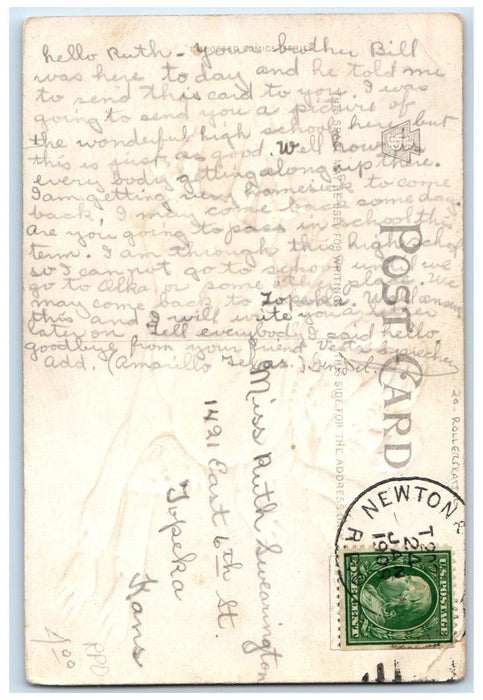 hello Ruth - your brother Bill
was here to day and he told me
to send this card to you. I was
going to send you a picture of
the wonderful high school here but
this is just as good. Well how is
every body getting along up there.
I am getting very homesick to come
back, I may come back some day.
are you going to pass in school this
term. I am through this high school
so I can not go to school until we
go to Okla or some other place. We
may come back to Topeka. Well answer
this and I will write you a letter
later on. Tell everybody I said hello
goodbye from your friend
Add. (Amarillo Texas, Gen Del.)
POST CARD
THIS SIDE FOR THE ADDRESS
Miss Ruth Swearington
1421 East 6th St.
Topeka
Kans
20-ROLLERSKATI
NEWTON
JAN
U.S. POSTAGE
ONE CENT
PPD
4.00